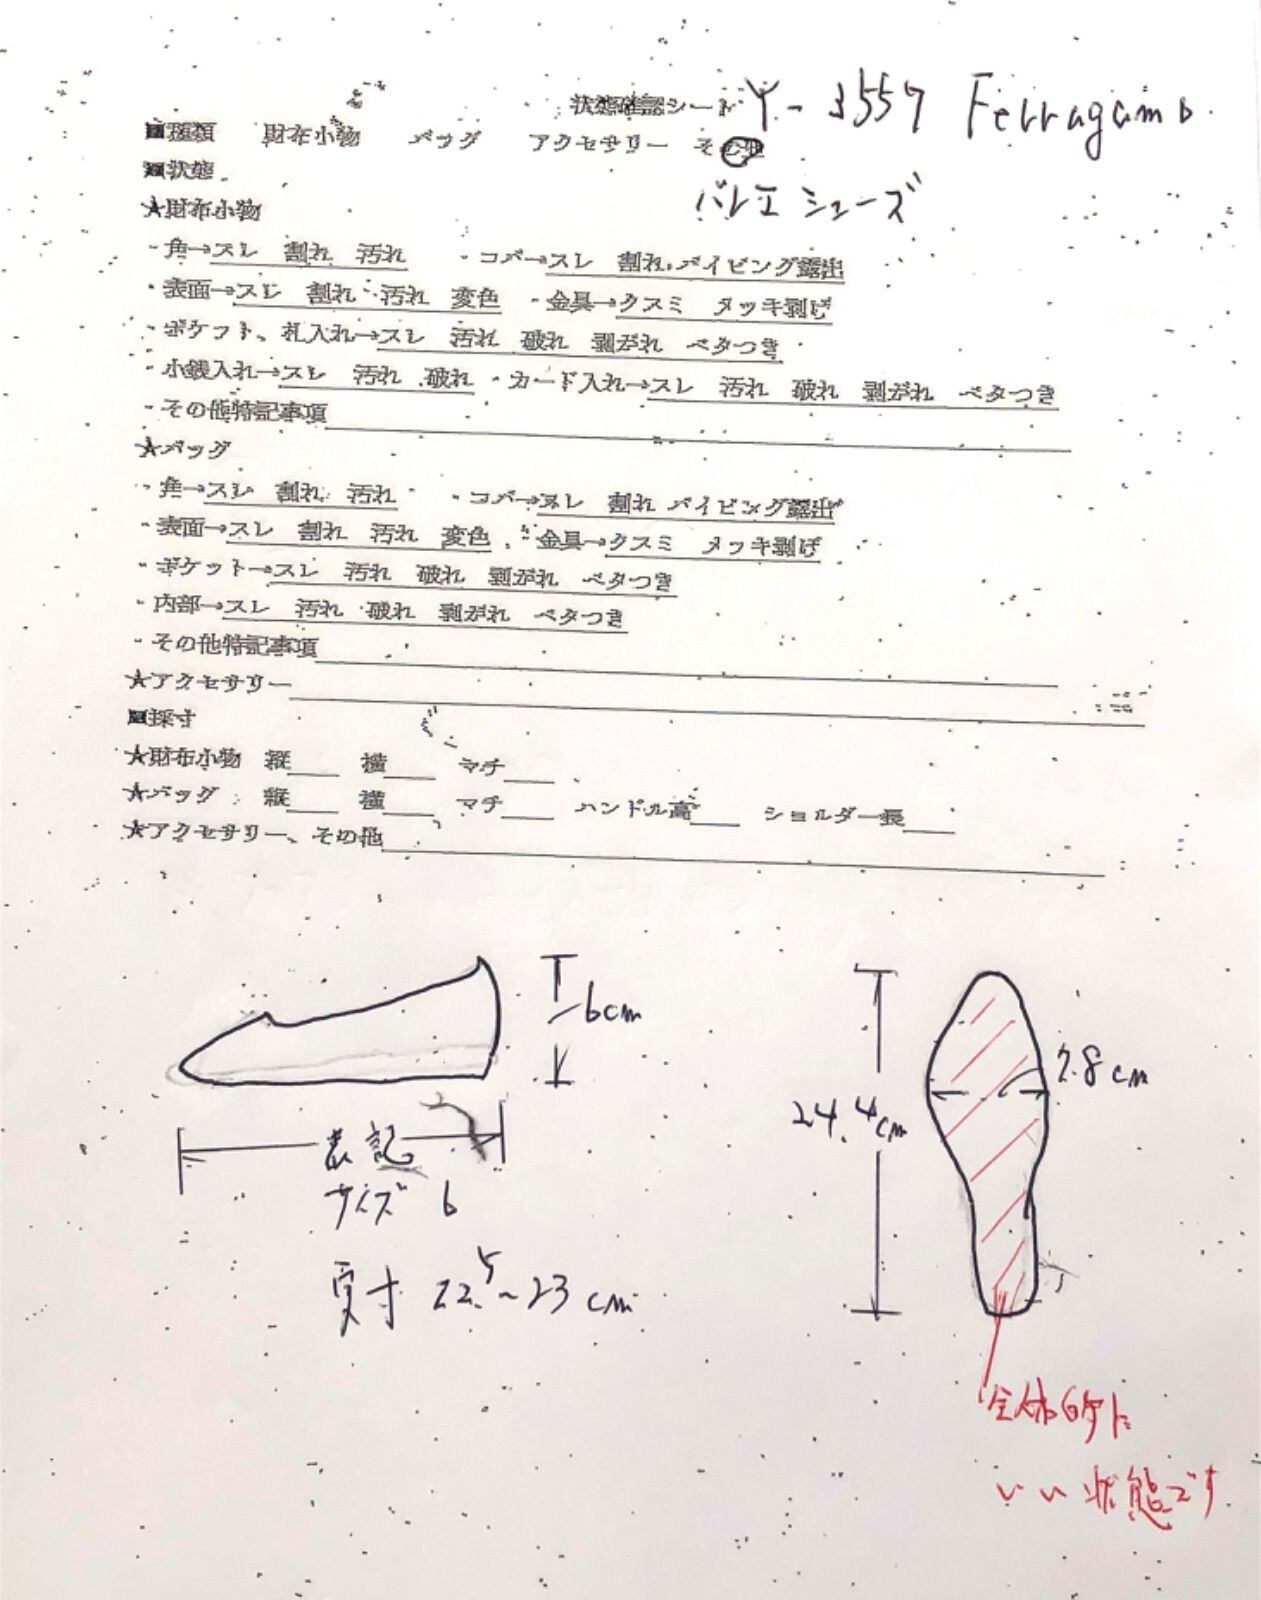 状態確認シート Y-3557 Ferragamo
■種類 財布小物 バッグ アクセサリー その他
■状態 バレエシューズ
★財布小物
・角→スレ 割れ 汚れ ・コバ→スレ 割れ パイピング露出
・表面→スレ 割れ 汚れ 変色 ・金具→クスミ メッキ剥げ
・ポケット、札入れ→スレ 汚れ 破れ 剥がれ ベタつき
・小銭入れ→スレ 汚れ 破れ ・カード入れ→スレ 汚れ 破れ 剥がれ ベタつき
・その他特記事項
★バッグ
・角→スレ 割れ 汚れ ・コバ→スレ 割れ パイピング露出
・表面→スレ 割れ 汚れ 変色 ・金具→クスミ メッキ剥げ
・ポケット→スレ 汚れ 破れ 剥がれ ベタつき
・内部→スレ 汚れ 破れ 剥がれ ベタつき
・その他特記事項
★アクセサリー
■採寸
★財布小物 縦 横 マチ
★バッグ 縦 横 マチ ハンドル高 ショルダー長
★アクセサリー、その他
6cm
7.8cm
24.4cm
表記
サイズ 6
実寸 22.5~23cm
全体的に
いい状態です